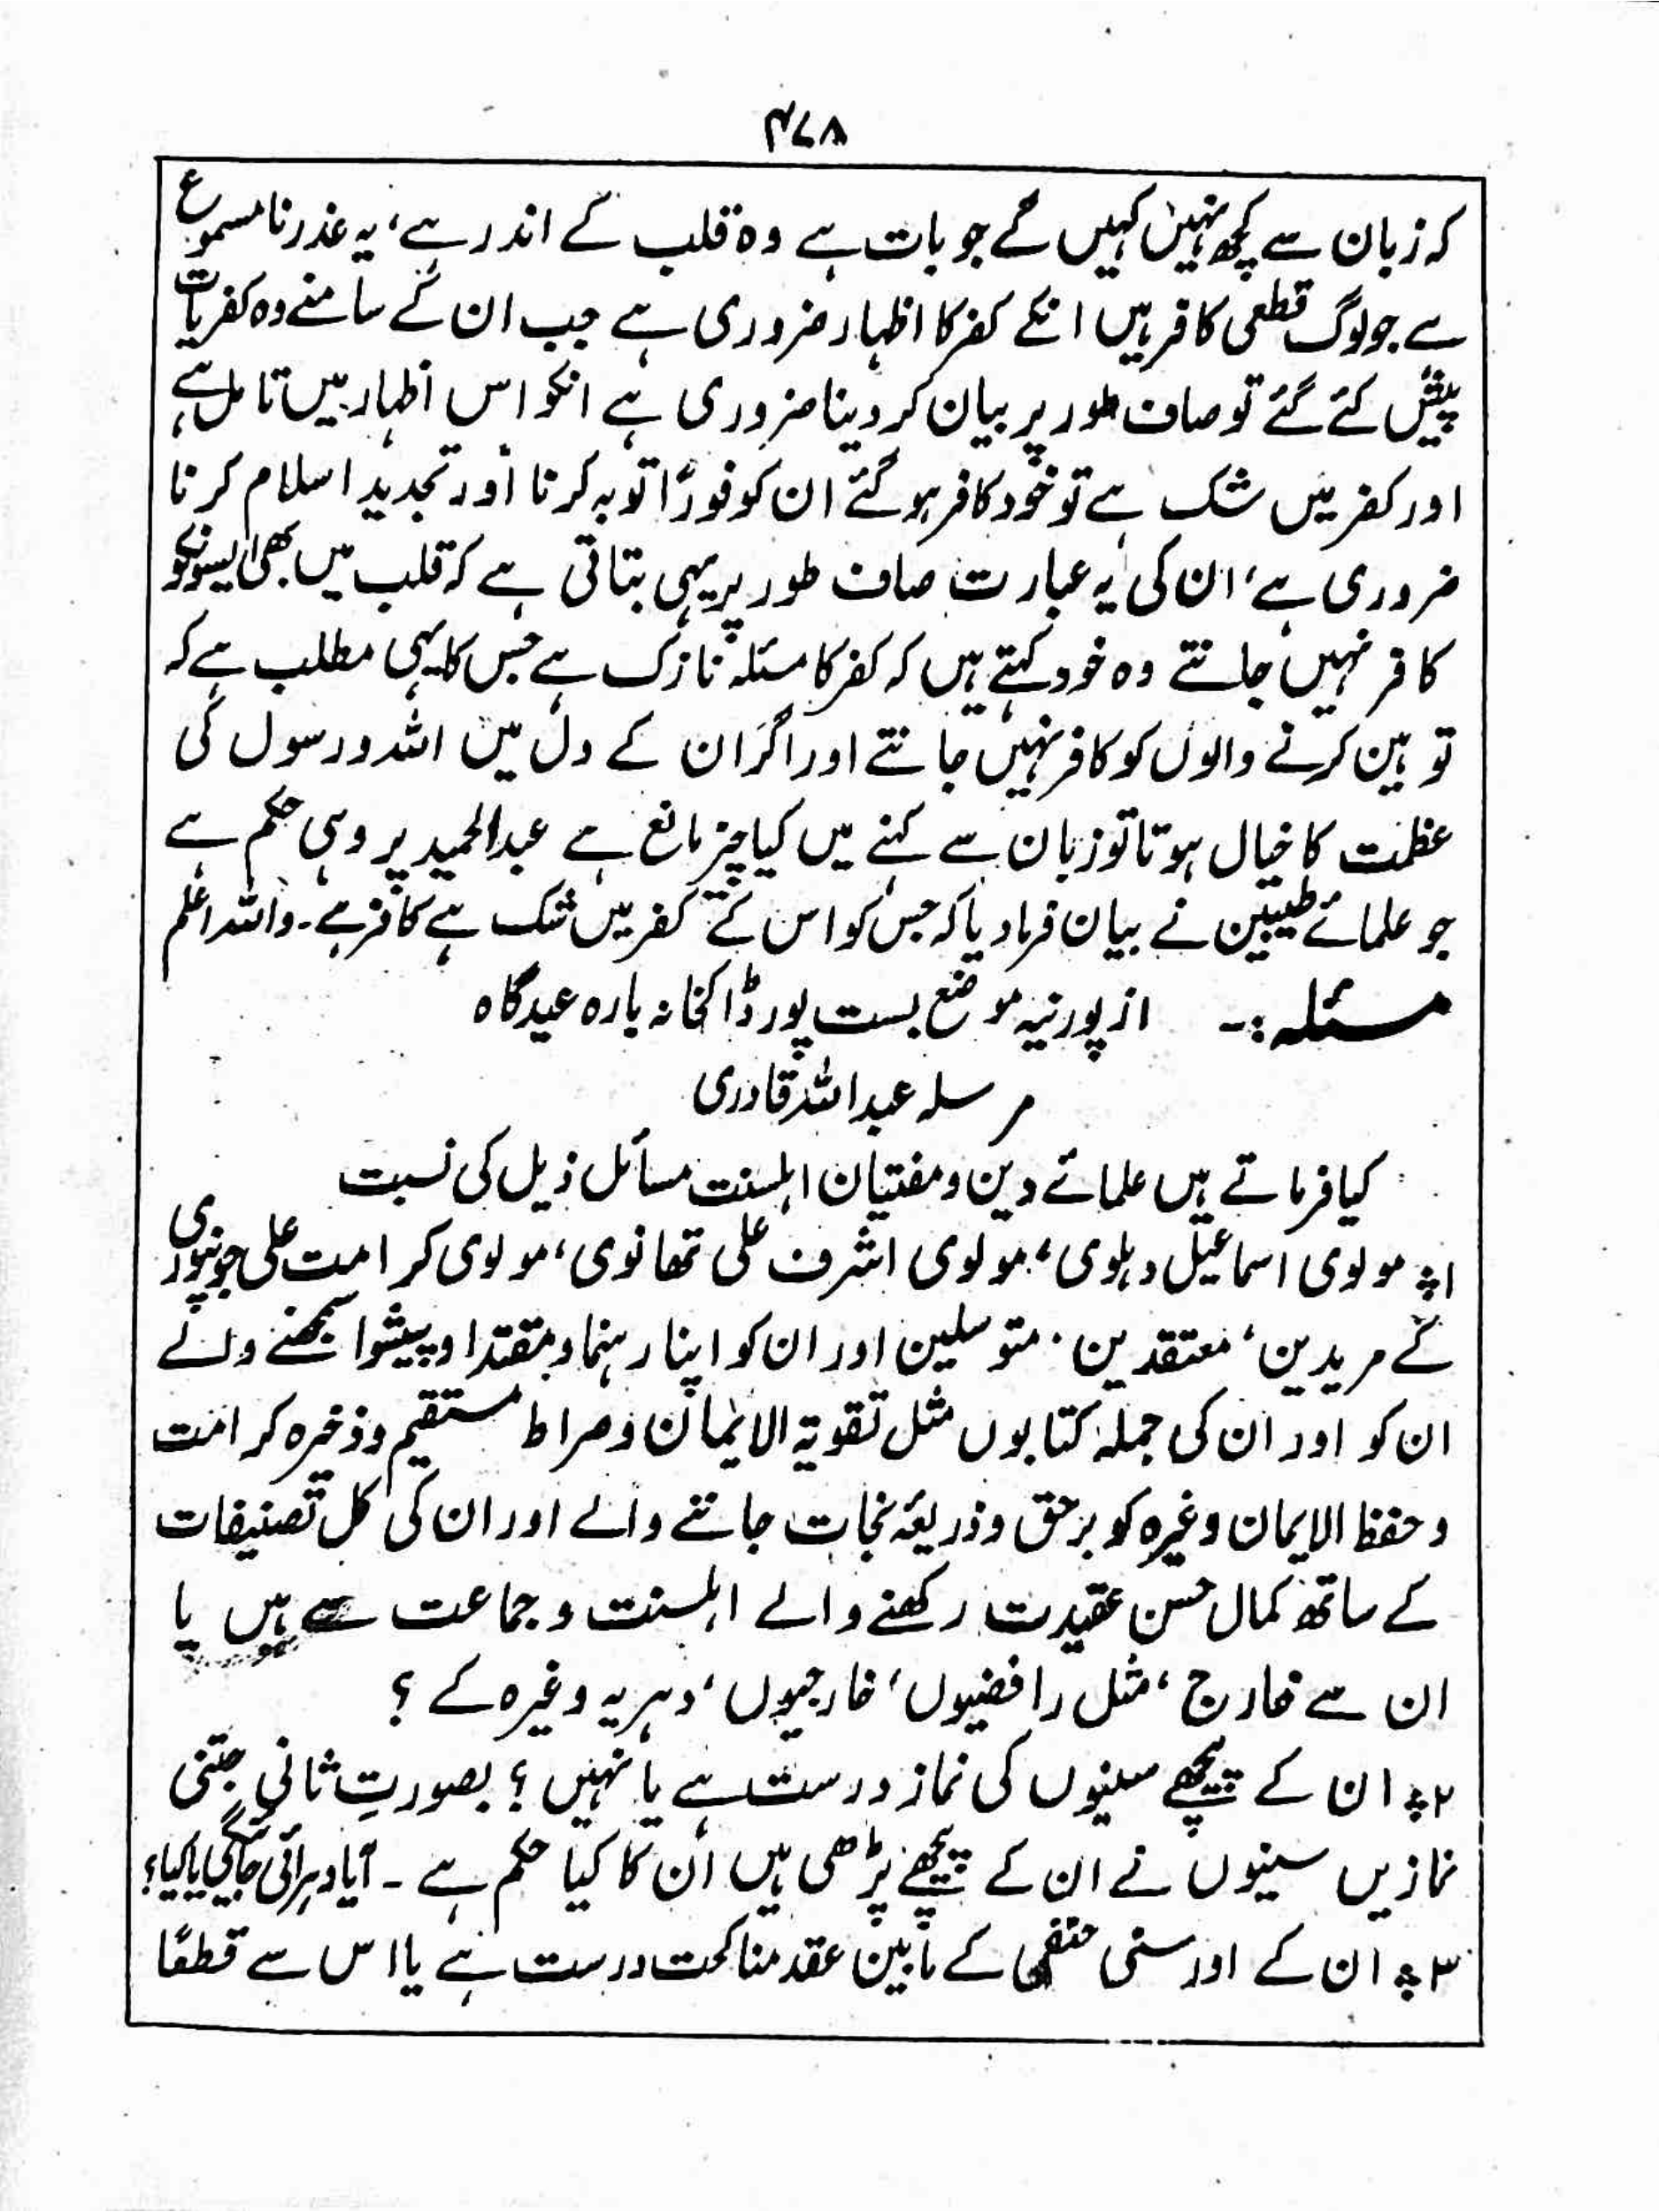 ۴۷۸
کہ زبان سے کچھ نہیں کہیں گے جو بات ہے وہ قلب کے اندر ہے، یہ عذر نامسموع
ہے جو لوگ قطعی کافر ہیں انکے کفر کا اظہار ضروری ہے جب ان کے سامنے وہ کفریات
پیش کئے گئے تو صاف طور پر بیان کر دینا ضروری ہے انکو اس اظہار میں تامل ہے
اور کفر میں شک ہے تو خود کافر ہو گئے ان کو فورًا توبہ کرنا اور تجدید اسلام کرنا
ضروری ہے، ان کی یہ عبارت صاف طور پر یہی بتاتی ہے کہ قلب میں بھی ایسونکو
کافر نہیں جانتے وہ خود کہتے ہیں کہ کفر کا مسئلہ نازک ہے جس کا یہی مطلب ہے کہ
توہین کرنے والوں کو کافر نہیں جانتے اور اگر ان کے دل میں اللہ و رسول کی
عظمت کا خیال ہوتا تو زبان سے کہنے میں کیا چیز مانع ہے عبدالحمید پر وہی حکم ہے
جو علمائے طیبین نے بیان فرما دیا کہ جس کو اس کے کفر میں شک ہے کافر ہے۔ واللہ اعلم
مسئلہ :۔ از پورنیہ موضع بست پور ڈاکخانہ بارہ عیدگاہ
مرسلہ عبداللہ قادری
کیا فرماتے ہیں علمائے دین و مفتیان اہلسنت مسائل ذیل کی نسبت
۱؂ مولوی اسماعیل دہلوی، مولوی اشرف علی تھانوی، مولوی کرامت علی جونپوری
کے مریدین، معتقدین، متوسلین اور ان کو اپنا رہنما و مقتدا و پیشوا سمجھنے والے
ان کو اور ان کی جملہ کتابوں مثل تقویۃ الایمان و صراط مستقیم و ذخیرہ کرامت
و حفظ الایمان وغیرہ کو برحق و ذریعۂ نجات جاننے والے اور ان کی کل تصنیفات
کے ساتھ کمال حسن عقیدت رکھنے والے اہلسنت و جماعت سے ہیں یا
ان سے خارج، مثل رافضیوں، خارجیوں، دہریہ وغیرہ کے ؟
۲؂ ان کے پیچھے سنیوں کی نماز درست ہے یا نہیں ؟ بصورتِ ثانی جتنی
نمازیں سنیوں نے ان کے پیچھے پڑھی ہیں ان کا کیا حکم ہے ۔ آیا دہرائی جائیگی یا کیا؟
۳؂ ان کے اور سنی حنفی کے مابین عقد مناکحت درست ہے یا اس سے قطعًا